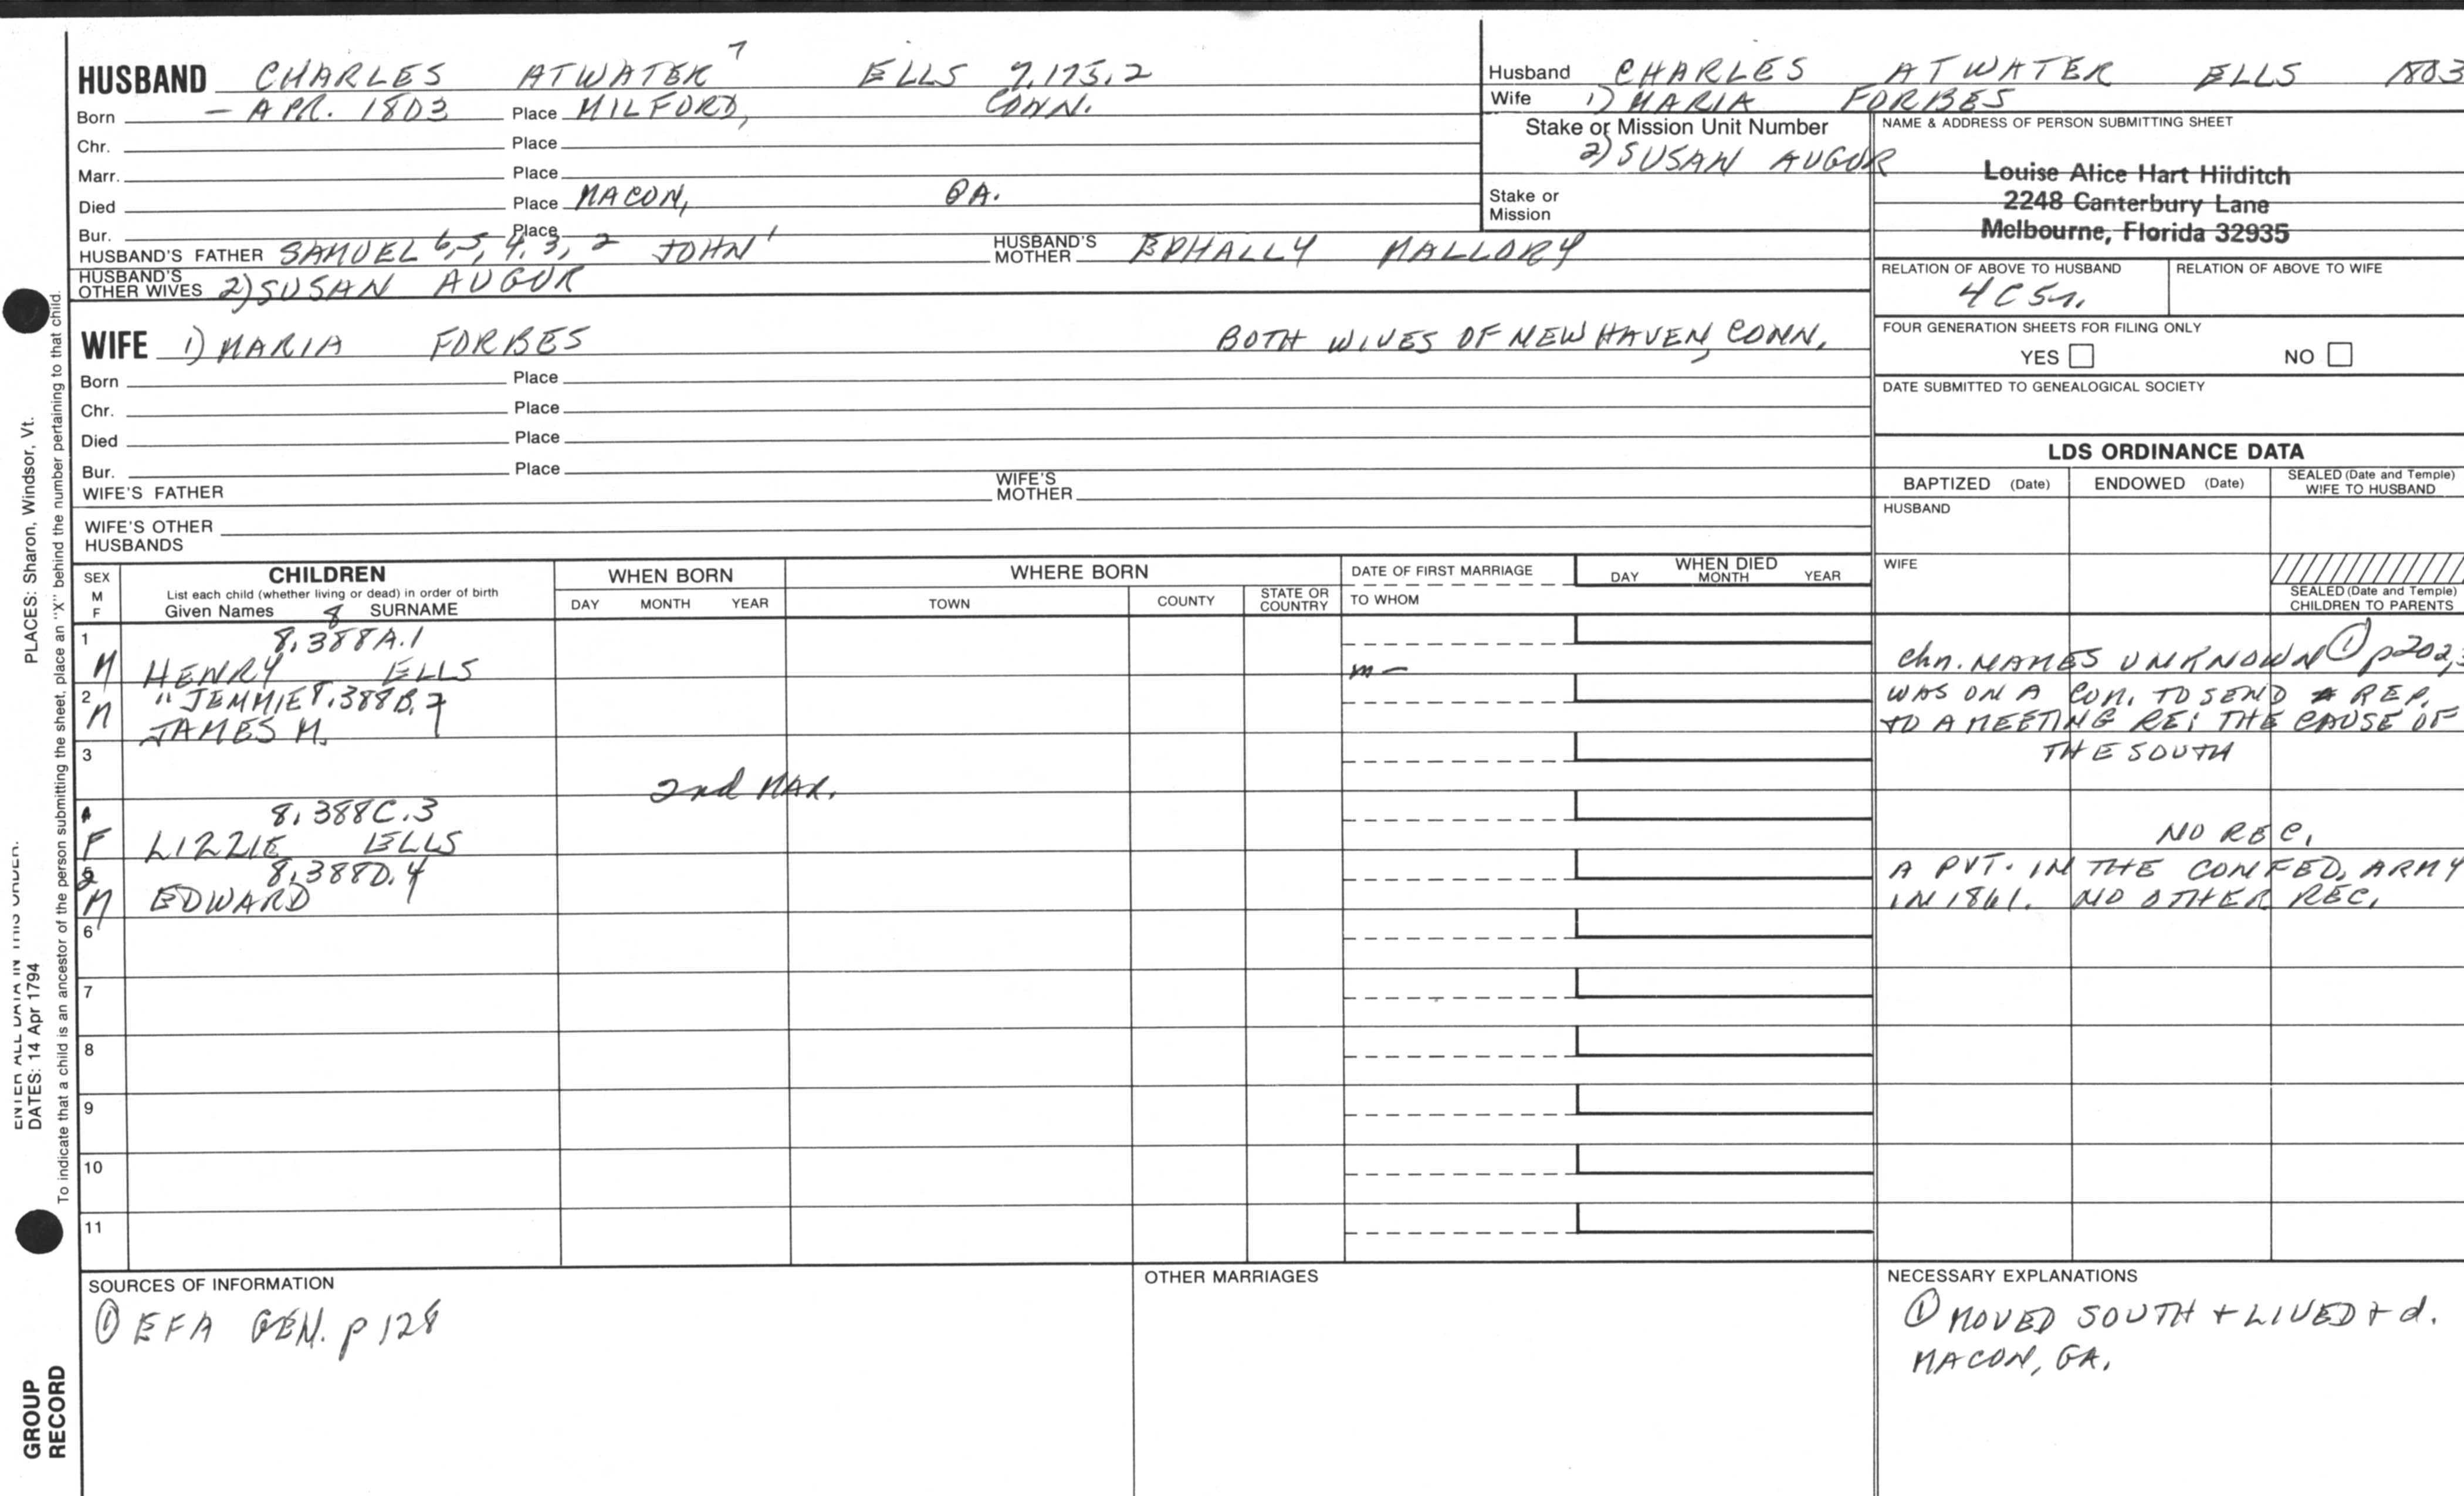 HUSBAND CHARLES ATWATER 7 ELLS 7.175.2
Born - APR. 1803 Place MILFORD, CONN.
Chr. Place
Marr. Place
Died Place MACON, GA.
Bur. Place
HUSBAND'S FATHER SAMUEL 6, 5, 4, 3, 2 JOHN 1 HUSBAND'S MOTHER EPHALLY MALLORY
HUSBAND'S OTHER WIVES 2) SUSAN AUGUR
WIFE 1) MARIA FORBES BOTH WIVES OF NEW HAVEN, CONN.
Born Place
Chr. Place
Died Place
Bur. Place
WIFE'S FATHER WIFE'S MOTHER
WIFE'S OTHER HUSBANDS
Husband CHARLES ATWATER ELLS 1803
Wife 1) MARIA FORBES
Stake or Mission Unit Number
2) SUSAN AUGUR
Stake or Mission
NAME & ADDRESS OF PERSON SUBMITTING SHEET
Louise Alice Hart Hilditch
2248 Canterbury Lane
Melbourne, Florida 32935
RELATION OF ABOVE TO HUSBAND RELATION OF ABOVE TO WIFE
4C5r.
FOUR GENERATION SHEETS FOR FILING ONLY
YES NO
DATE SUBMITTED TO GENEALOGICAL SOCIETY
LDS ORDINANCE DATA
BAPTIZED (Date) ENDOWED (Date) SEALED (Date and Temple) WIFE TO HUSBAND
HUSBAND
WIFE
SEALED (Date and Temple) CHILDREN TO PARENTS
SEX M F
CHILDREN
List each child (whether living or dead) in order of birth
Given Names 8 SURNAME
WHEN BORN
DAY MONTH YEAR
WHERE BORN
TOWN COUNTY STATE OR COUNTRY
DATE OF FIRST MARRIAGE
TO WHOM
WHEN DIED
DAY MONTH YEAR
1 8.388A.1
M HENRY ELLS m - chn. NAMES UNKNOWN ① p202,
2 "JEMMIE 8.388B.2 WAS ON A COM. TO SEND REP.
M JAMES M. TO A MEETING RE: THE CAUSE OF
3 THE SOUTH
2nd MAR.
8.388C.3
F LIZZIE ELLS NO REC.
8.388D.4 A PVT. IN THE CONFED. ARMY
M EDWARD IN 1861. NO OTHER REC.
6
7
8
9
10
11
SOURCES OF INFORMATION
① EFA GEN. p 128
OTHER MARRIAGES
NECESSARY EXPLANATIONS
① MOVED SOUTH + LIVED + d.
MACON, GA.
PLACES: Sharon, Windsor, Vt.
ENTER ALL DATA IN THIS ORDER:
DATES: 14 Apr 1794
To indicate that a child is an ancestor of the person submitting the sheet, place an "X" behind the number pertaining to that child.
GROUP
RECORD